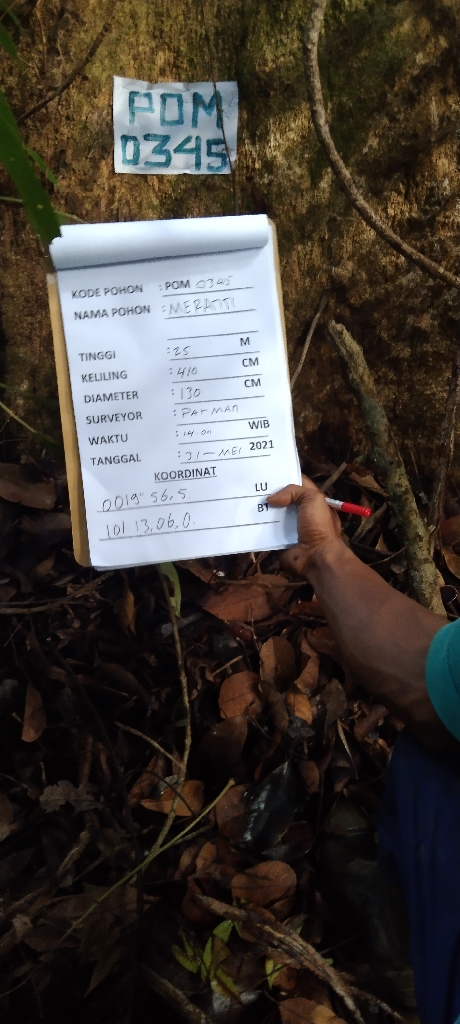 POM
0345
KODE POHON : POM 0345
NAMA POHON : MERANTI
TINGGI : 25 M
KELILING : 410 CM
DIAMETER : 130 CM
SURVEYOR : PARMAN
WAKTU : 14.011 WIB
TANGGAL : 31 - MEI 2021
KOORDINAT
0019" 56,5. LU
101. 13,06,0. BT